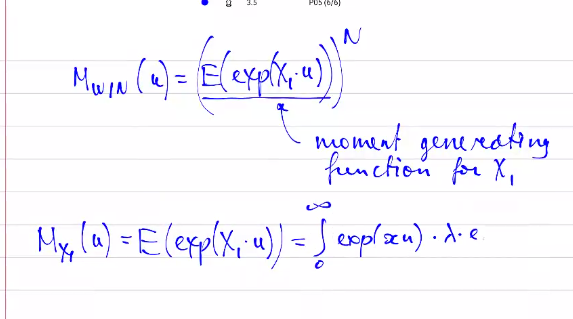 3.5 P05 (6/6)
M_{W|N}(u) = (E(exp(X₁·u)))^N
moment generating
function for X₁
M_{X₁}(u) = E(exp(X₁·u)) = ∫₀^∞ exp(xu)·λ·e